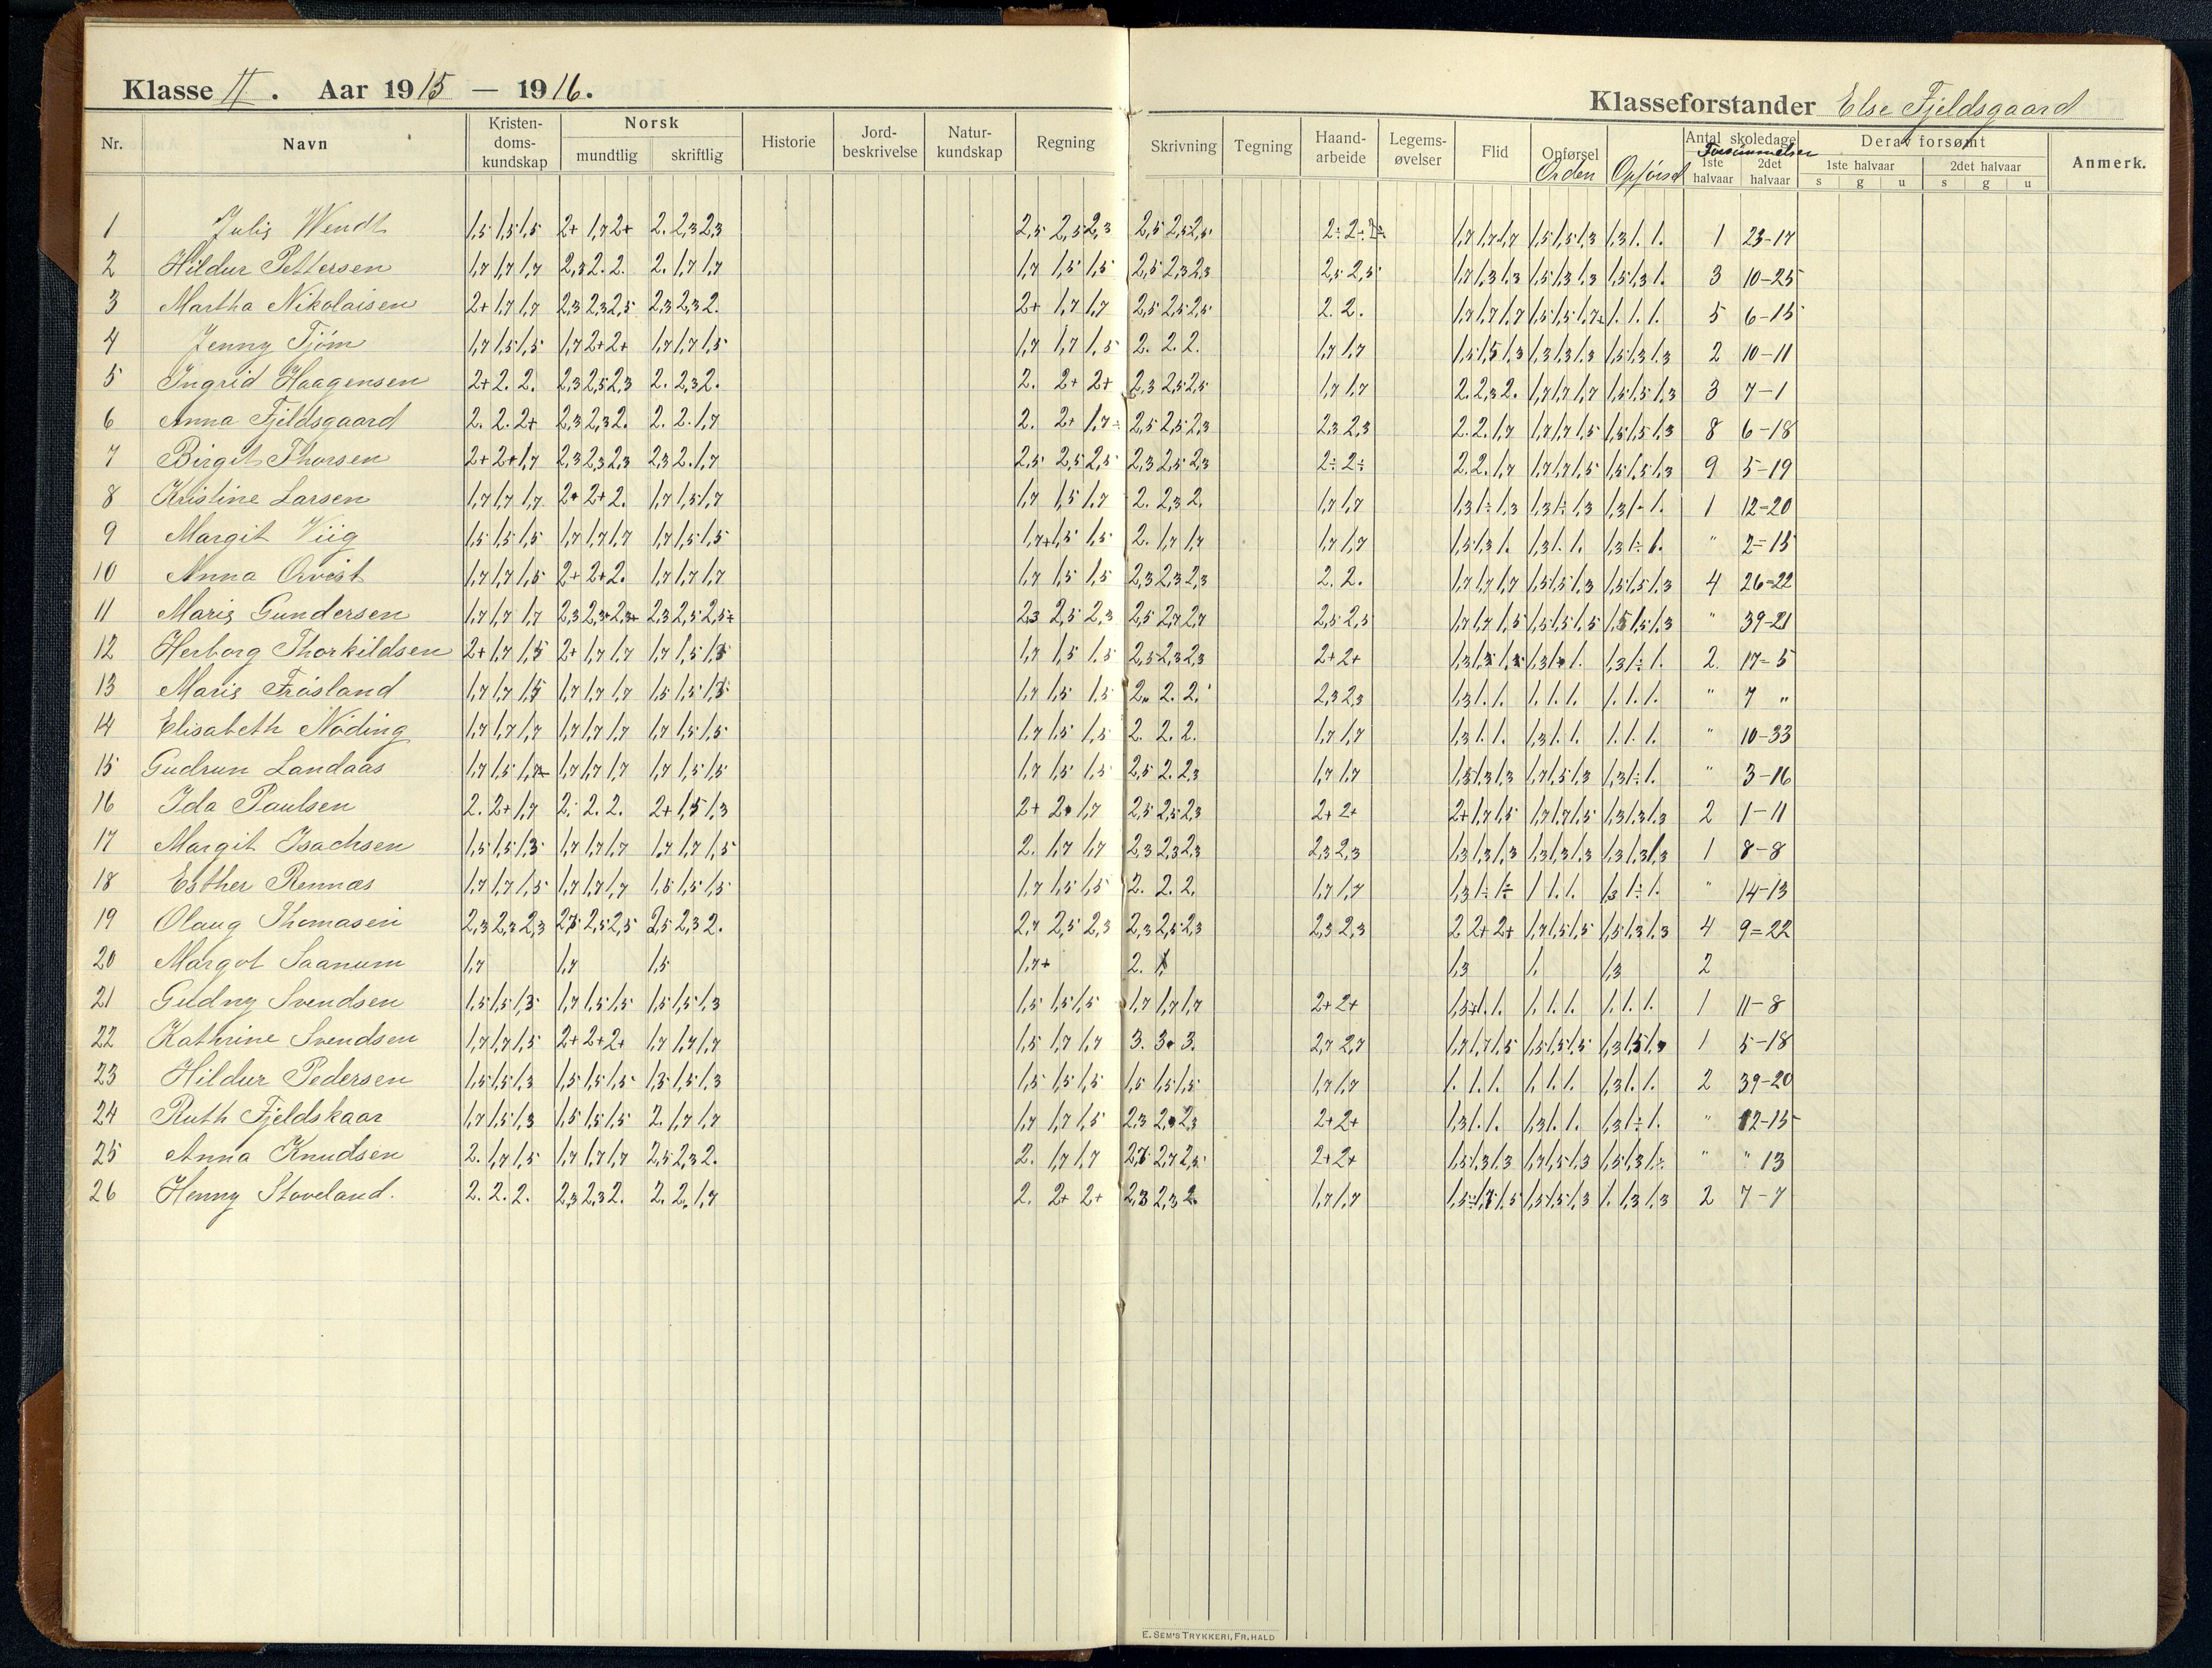 Klasse II. Aar 1915 — 1916.
Klasseforstander Else Fjeldsgaard
Nr. Navn Kristen-doms-kundskap Norsk mundtlig skriftlig Historie Jord-beskrivelse Natur-kundskap Regning Skrivning Tegning Haand-arbeide Legems-øvelser Flid Opførsel Orden Opførsel Antal skoledage Forsømmelser 1ste halvaar 2det halvaar Derav forsømt 1ste halvaar s g u 2det halvaar s g u Anmerk.
1 Julie Wendt 1,5 1,5 1,5 2+ 1,7 2+ 2. 2,3 2,3 2,5 2,5 2,3 2,5 2,5 2,5 2÷ 2÷ 1,7 1,7 1,7 1,5 1,5 1,3 1,3 1. 1. 1 23-17
2 Hildur Pettersen 1,7 1,7 1,7 2,3 2. 2. 2. 1,7 1,7 1,7 1,5 1,5 2,5 2,3 2,3 2,5 2,5 1,7 1,3 1,3 1,5 1,3 1,3 1,5 1,3 1. 3 10-25
3 Martha Nikolaisen 2+ 1,7 1,7 2,3 2,3 2,5 2,3 2,3 2. 2+ 1,7 1,7 2,5 2,5 2,5 2. 2. 1,7 1,7 1,7 1,5 1,5 1,7 1. 1. 1. 5 6-15
4 Jenny Tjøm 1,7 1,5 1,5 1,7 2+ 2+ 1,7 1,7 1,5 1,7 1,7 1,5 2. 2. 2. 1,7 1,7 1,5 1,5 1,3 1,3 1,3 1,3 1,5 1,3 1,3 2 10-11
5 Ingrid Haagensen 2+ 2. 2. 2,3 2,5 2,3 2. 2,3 2. 2. 2+ 2+ 2,3 2,5 2,5 1,7 1,7 2. 2,3 2. 1,7 1,7 1,7 1,5 1,5 1,3 3 7-1
6 Anna Fjeldsgaard 2. 2. 2+ 2,3 2,3 2. 2. 2. 1,7 2. 2+ 1,7÷ 2,5 2,5 2,3 2,3 2,3 2. 2. 1,7 1,7 1,7 1,5 1,5 1,5 1,3 8 6-18
7 Birgit Thorsen 2+ 2+ 1,7 2,3 2,3 2,3 2,3 2. 1,7 2,5 2,5 2,5 2,3 2,5 2,3 2÷ 2÷ 2. 2. 1,7 1,7 1,7 1,5 1,5 1,5 1,3 9 5-19
8 Kristine Larsen 1,7 1,7 1,7 2+ 2+ 2. 1,7 1,5 1,7 1,7 1,5 1,7 2. 2,3 2. 1,7 1,7 1,3 1÷ 1,3 1,3 1÷ 1,3 1,3 1- 1. 1 12-20
9 Margit Viig 1,5 1,5 1,5 1,7 1,7 1,7 1,7 1,5 1,5 1,7+ 1,5 1,5 2. 1,7 1,7 1,7 1,7 1,5 1,3 1. 1,3 1. 1. 1,3 1÷ 1. " 2-15
10 Anna Qvist 1,7 1,7 1,5 2+ 2+ 2. 1,7 1,7 1,7 1,7 1,5 1,5 2,3 2,3 2,3 2. 2. 1,7 1,7 1,7 1,5 1,5 1,3 1,5 1,5 1,3 4 26-22
11 Marie Gundersen 1,7 1,7 1,7 2,3 2,3+ 2,3+ 2,3 2,5 2,5÷ 2,3 2,5 2,3 2,5 2,7 2,7 2,5 2,5 1,7 1,7 1,5 1,5 1,5 1,5 1,5 1,5 1,3 " 39-21
12 Herborg Thorkildsen 2+ 1,7 1,5 2+ 1,7 1,7 1,7 1,5 1,5 1,7 1,5 1,5 2,5 2,3 2,3 2+ 2+ 1,3 1,3 1,3 1,3 1÷ 1. 1,3 1÷ 1. 2. 17-5
13 Marie Frøsland 1,7 1,7 1,5 1,7 1,7 1,7 1,5 1,5 1,3 1,7 1,5 1,5 2. 2. 2. 2,3 2,3 1,3 1. 1. 1. 1. 1. 1. 1. 1. " 7 "
14 Elisabeth Nöding 1,7 1,7 1,7 1,7 1,7 1,7 1,7 1,5 1,5 1,7 1,5 1,5 2. 2. 2. 1,7 1,7 1,3 1. 1. 1,3 1. 1. 1. 1. 1. " 10-33
15 Gudrun Landaas 1,7 1,5 1,7 1,7 1,7 1,7 1,7 1,5 1,5 1,7 1,5 1,5 2,5 2. 2,3 1,7 1,7 1,5 1,3 1,3 1,7 1,5 1,3 1,3 1÷ 1. " 3-16
16 Ida Paulsen 2. 2+ 1,7 2. 2. 2. 2+ 1,5 1,3 2+ 2+ 1,7 2,5 2,5 2,3 2+ 2+ 2+ 1,7 1,5 1,7 1,7 1,5 1,3 1,3 1,3 2 1-11
17 Margit Isachsen 1,5 1,5 1,3 1,7 1,7 1,7 1,7 1,7 1,5 2. 1,7 1,7 2,3 2,3 2,3 2,3 2,3 1,3 1,3 1,3 1,3 1,3 1,3 1,3 1,3 1,3 1 8-8
18 Esther Rennæs 1,7 1,7 1,5 1,7 1,7 1,7 1,5 1,5 1,5 1,7 1,5 1,5 2. 2. 2. 1,7 1,7 1,3 1÷ 1÷ 1 1. 1. 1,3 1÷ 1. " 14-13
19 Olaug Thomasen 2,3 2,3 2,3 2,5 2,5 2,5 2,5 2,3 2. 2,7 2,5 2,3 2,3 2,5 2,3 2,3 2,3 2 2+ 2+ 1,7 1,5 1,5 1,5 1,3 1,3 4 9-22
20 Margot Saanum 1,7 1,7 1,5 1,7+ 2. 1,3 1. 1,3 2
21 Gudny Svendsen 1,5 1,5 1,3 1,7 1,5 1,5 1,5 1,5 1,3 1,5 1,5 1,5 1,7 1,7 1,7 2+ 2+ 1,5+ 1. 1. 1. 1. 1. 1. 1. 1. 1 11-8
22 Kathrine Svendsen 1,7 1,7 1,5 2+ 2+ 2+ 1,7 1,7 1,7 1,5 1,7 1,7 3. 3. 3. 2,7 2,7 1,7 1,7 1,5 1,5 1,5 1,5 1,3 1,5 1 5-18
23 Hildur Pedersen 1,5 1,5 1,3 1,5 1,5 1,5 1,3 1,5 1,3 1,5 1,5 1,5 1,5 1,5 1,5 1,7 1,7 1. 1. 1. 1. 1. 1. 1,3 1. 1. 2 39-20
24 Ruth Fjeldskaar 1,7 1,5 1,3 1,5 1,5 1,5 2. 1,7 1,7 1,7 1,7 1,5 2,3 2. 2,3 2+ 2+ 1,3 1. 1. 1,3 1. 1. 1,3 1÷ 1. " 12-15
25 Anna Knudsen 2. 1,7 1,5 1,7 1,7 1,7 2,5 2,3 2. 2. 1,7 1,7 2,7 2,7 2,5 2+ 2+ 1,5 1,3 1,3 1,7 1,5 1,3 1,5 1,3 1÷ " " 13
26 Henny Stoveland. 2. 2. 2. 2,3 2,3 2. 2. 2. 1,7 2. 2+ 2+ 2,3 2,3 2. 1,7 1,7 1,5÷ 1,7 1,5 1,5 1,5 1,3 1. 1,3 1,3 2 7-7
E. SEM'S TRYKKERI, FR. HALD